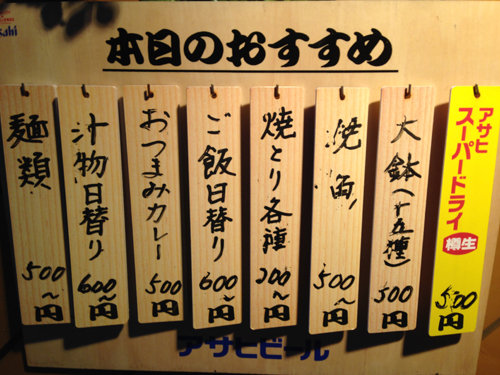 本日のおすすめ
アサヒ
スーパードライ
樽生
500円
大鉢(十五種)
500円
焼魚
500〜円
焼とり各種
200〜円
ご飯日替り
600〜円
おつまみカレー
500円
汁物日替り
600〜円
麺類
500〜円
アサヒビール